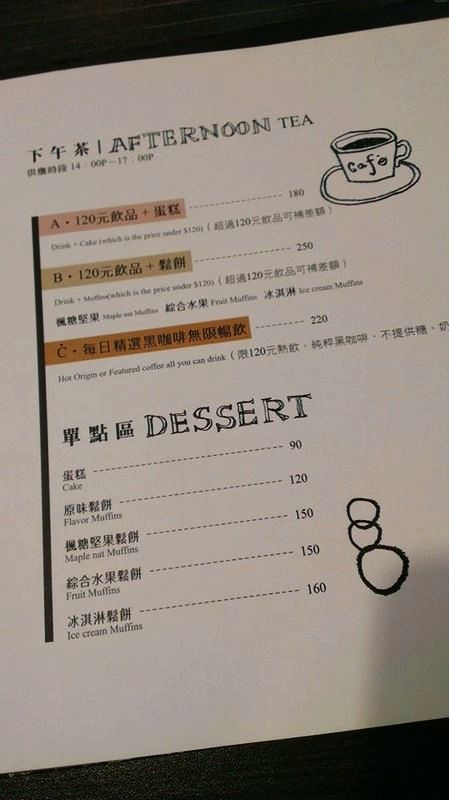 下午茶 | AFTERNOON TEA
供應時段 14：00P－17：00P
Café
A・120元飲品＋蛋糕 180
Drink + Cake (which is the price under $120)（超過120元飲品可補差額）
B・120元飲品＋鬆餅 250
Drink + Muffins(which is the price under $120)（超過120元飲品可補差額）
楓糖堅果 Maple nat Muffins 綜合水果 Fruit Muffins 冰淇淋 Ice cream Muffins
C・每日精選黑咖啡無限暢飲 220
Hot Origin or Featured coffee all you can drink（限120元熱飲、純粹黑咖啡，不提供糖、奶
單點區 DESSERT
蛋糕 90
Cake
原味鬆餅 120
Flavor Muffins
楓糖堅果鬆餅 150
Maple nat Muffins
綜合水果鬆餅 150
Fruit Muffins
冰淇淋鬆餅 160
Ice cream Muffins